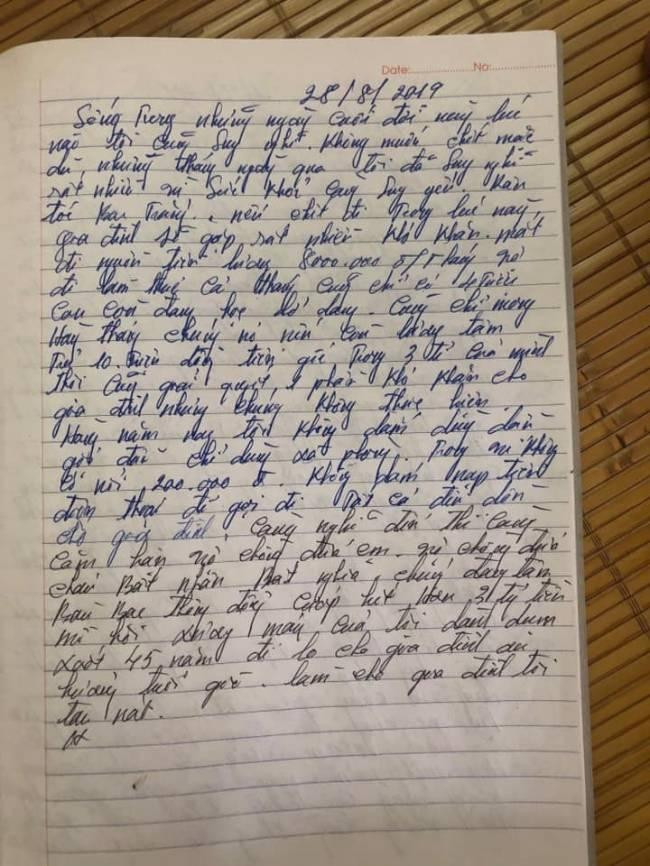 Date: No:
28/8/2019
Sống Trong những ngày cuối đời này lúc
nào tôi cũng suy nghĩ. Không muốn chết mặc
dù, những tháng ngày qua tôi đã suy nghĩ
rất nhiều sức khỏe suy yếu.
nếu chết đi Trong lúc này,
gia đình sẽ gặp rất nhiều khó khăn. mất
đi nguồn tiền lương 8000.000 đ/Tháng
đi làm thuê cả tháng cũng chỉ có 4 Triệu
con đang học dở dang. Cũng chỉ mong
Hàng tháng chúng nó nên còn lương tâm
Trả 10. Triệu đồng tiền gửi Trong 3 tỉ của mình
thôi cũng giải quyết 1 phần khó khăn cho
gia đình nhưng chúng không thực hiện
Hàng năm nay tôi không dám dùng dầu
gội đầu chỉ dùng xà phòng. Trong không
có nổi 200.000 đ. không dám nạp tiền
điện thoại để gọi đi Tất cả để dồn
cho gia đình. Càng nghĩ đến thì càng
căm hận vợ chồng đứa em. vợ chồng đứa
cháu Bất nhân Bất nghĩa, chúng đang tâm
cướp hết hơn 3 tỷ tiền
mồ hôi xương máu của tôi dành dụm
suốt 45 năm để lo cho gia đình
hưởng tuổi già. làm cho gia đình tôi
tan nát.